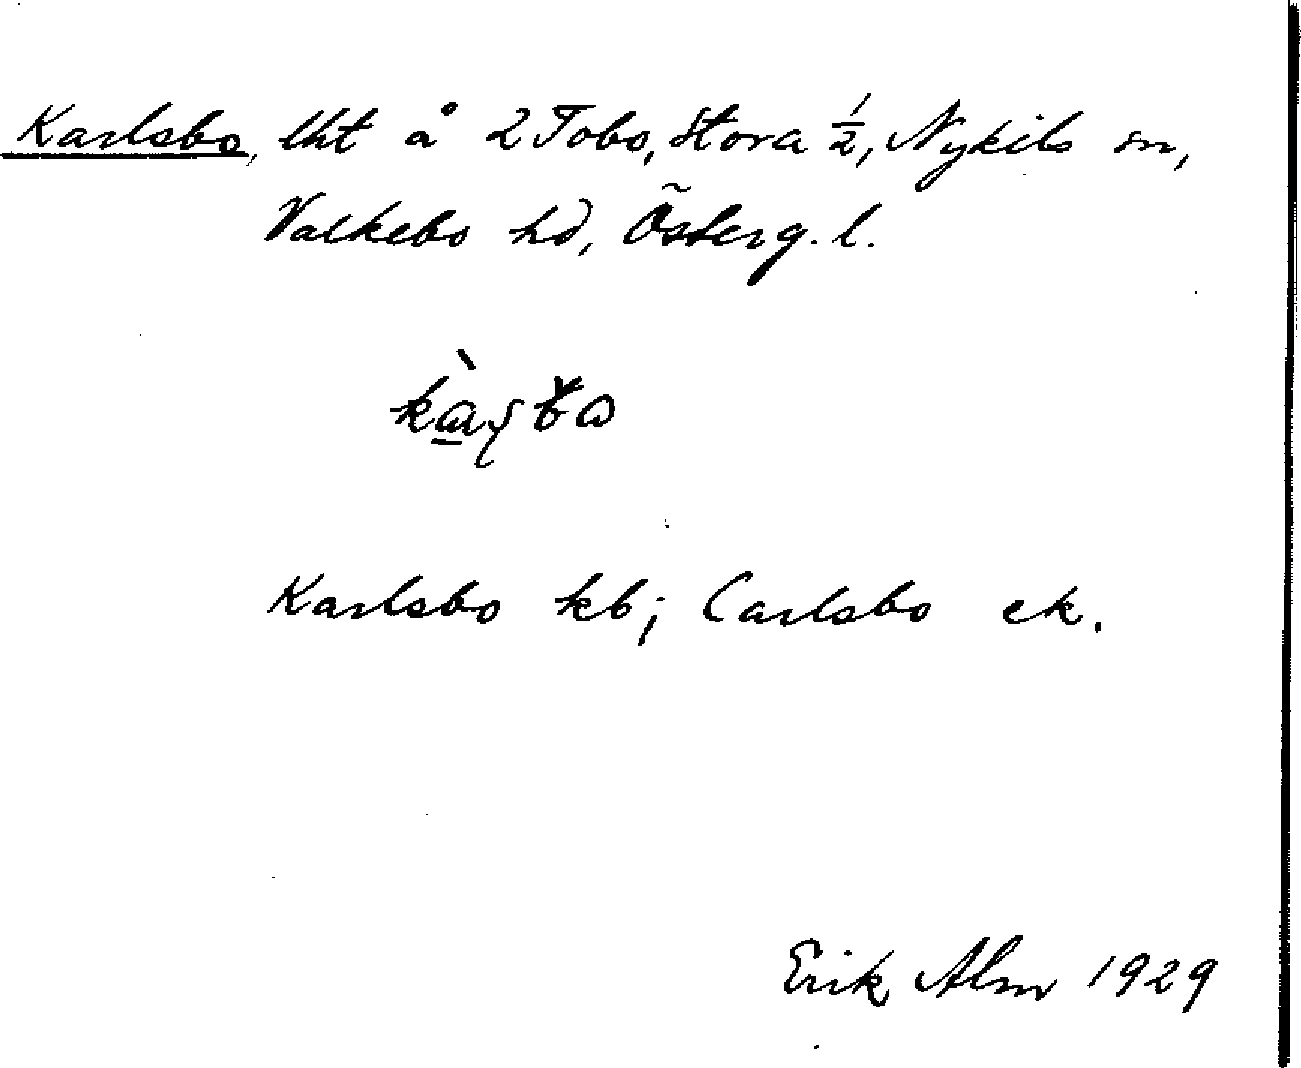 Karlsbo, lht å 2 Tobo, Stora ½, Nykils sn,
Valkebo hd, Österg. l.
Karlsbo kb; Carlsbo ek.
Erik Alm 1929